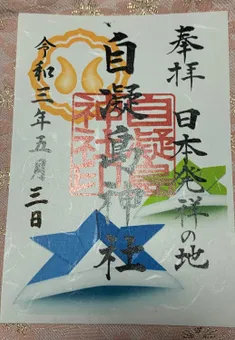 奉拝 日本発祥の地
自凝島神社
自凝島神社印
令和三年五月三日